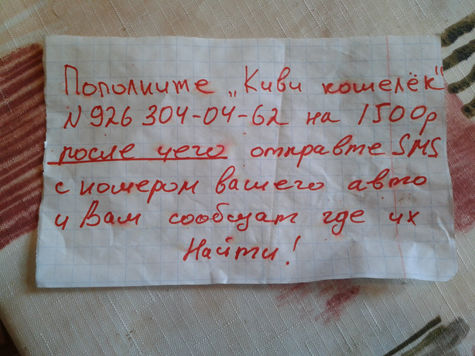 Пополните „Киви кошелёк"
N 926 304-04-62 на 1500р
после чего отправте SMS
с номером вашего авто
и Вам сообщат где их
Найти!